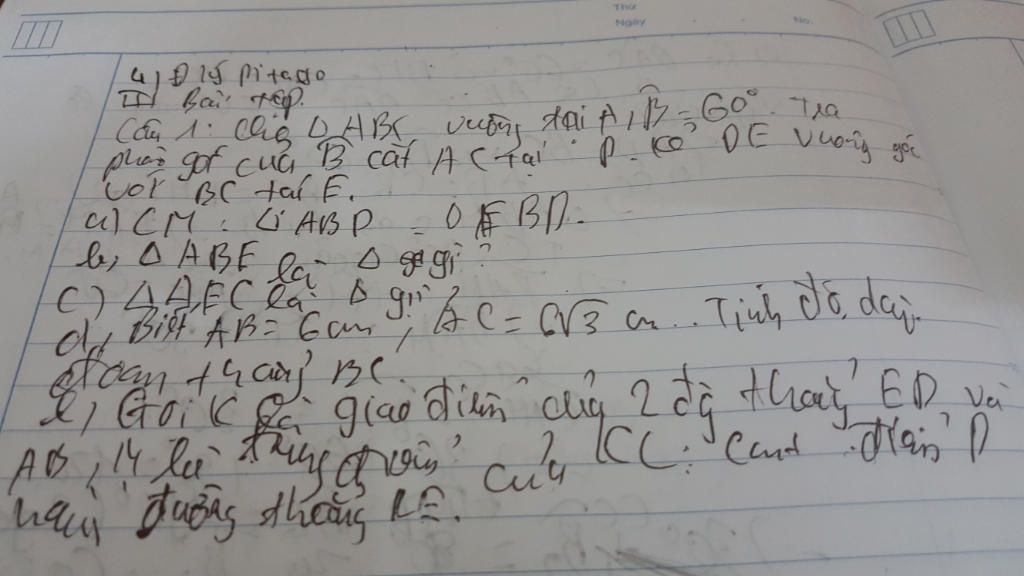 Thứ
Ngày No.
4, Đ lý Pitago
II) Bài tập.
Câu 1: Cho Δ ABC vuông tại A, B̂ = 60°. Tia
phân góc của B cắt AC tại D. Kẻ DE vuông góc
với BC tại E.
a) CM: Δ ABD = Δ EBD.
b, Δ ABE là Δ gì?
c) Δ AEC là Δ gì?
d, Biết AB = 6cm, AC = 6√3 cm. Tính độ dài
đoạn thẳng BC.
e, Gọi K là giao điểm của 2 đg thẳng ED và
AB, M là trung điểm của KC. điểm D
đường thẳng